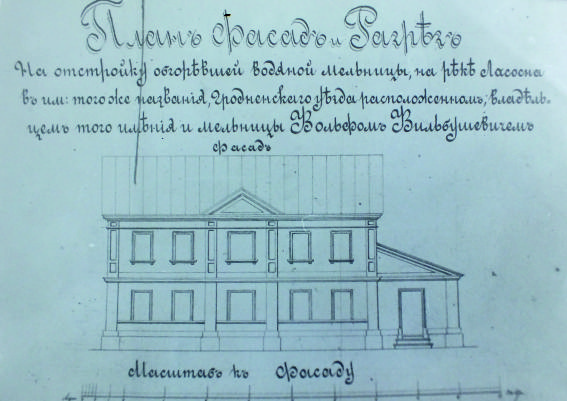 Планъ Фасадъ и Разрѣзъ
На отстройку обгорѣвшей водяной мельницы, на рѣкѣ Лососна
въ им: того же названія, Гродненскаго уѣзда расположенномъ, владѣль-
цемъ того имѣнія и мельницы Вольфомъ Вильбушевичемъ
Фасадъ
Масштабъ къ Фасаду